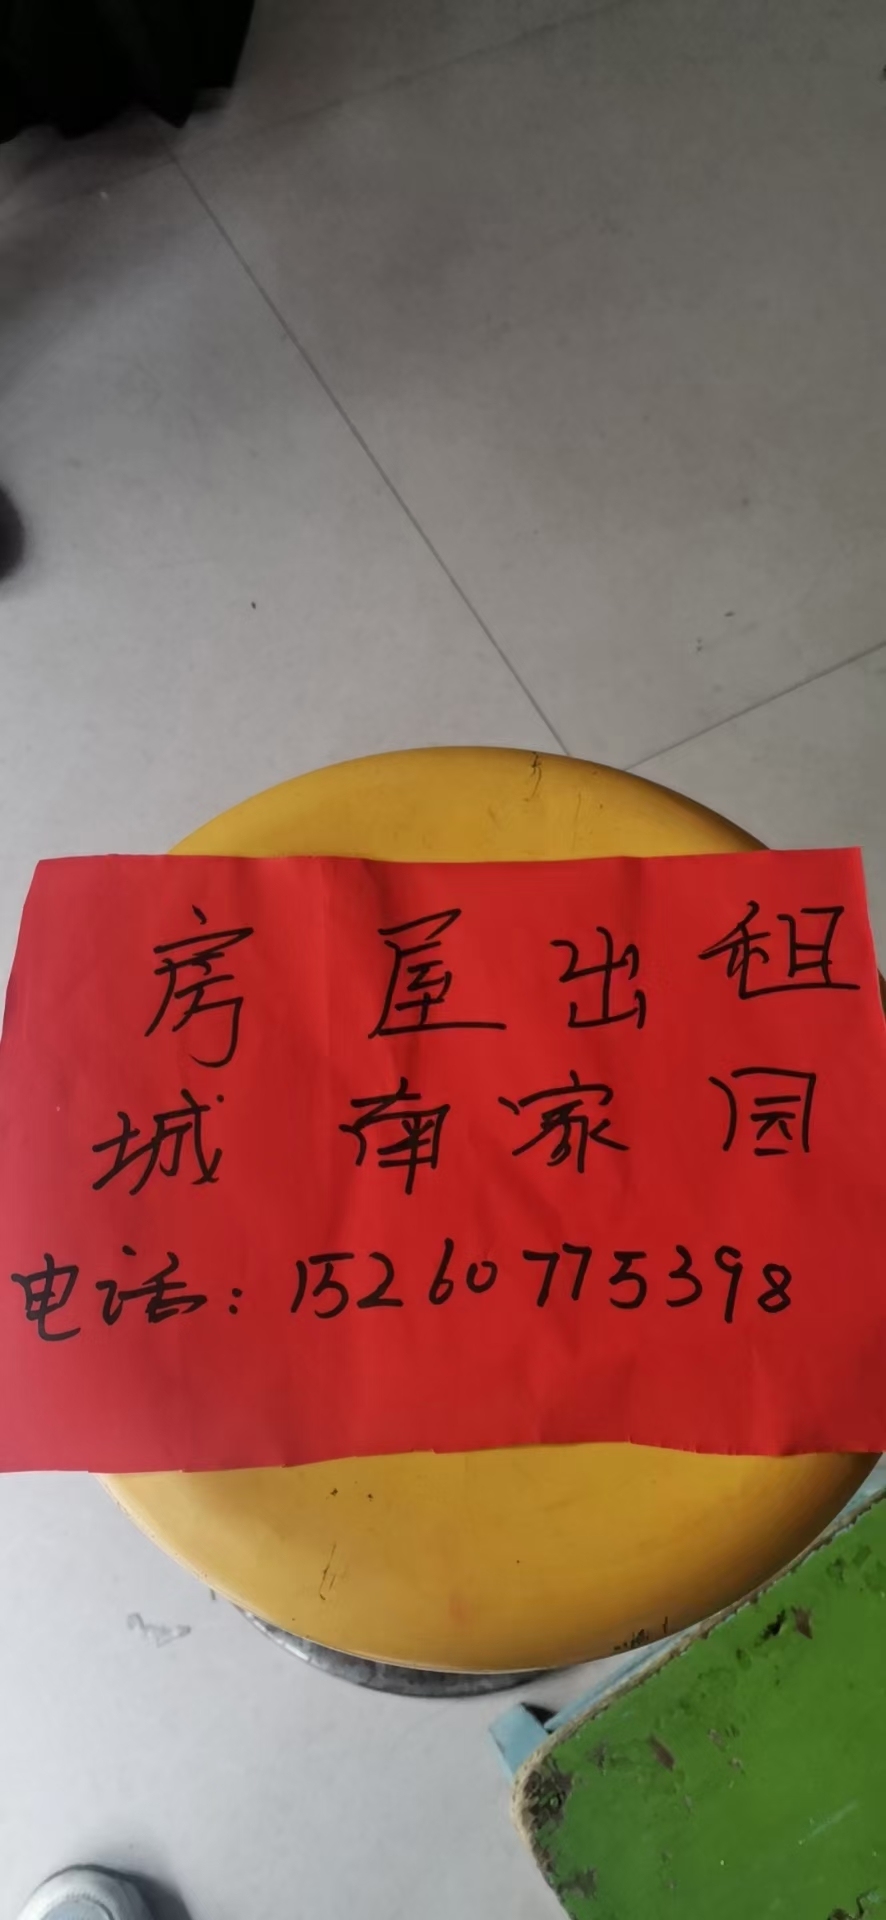 房屋出租
城南家园
电话：15260775398